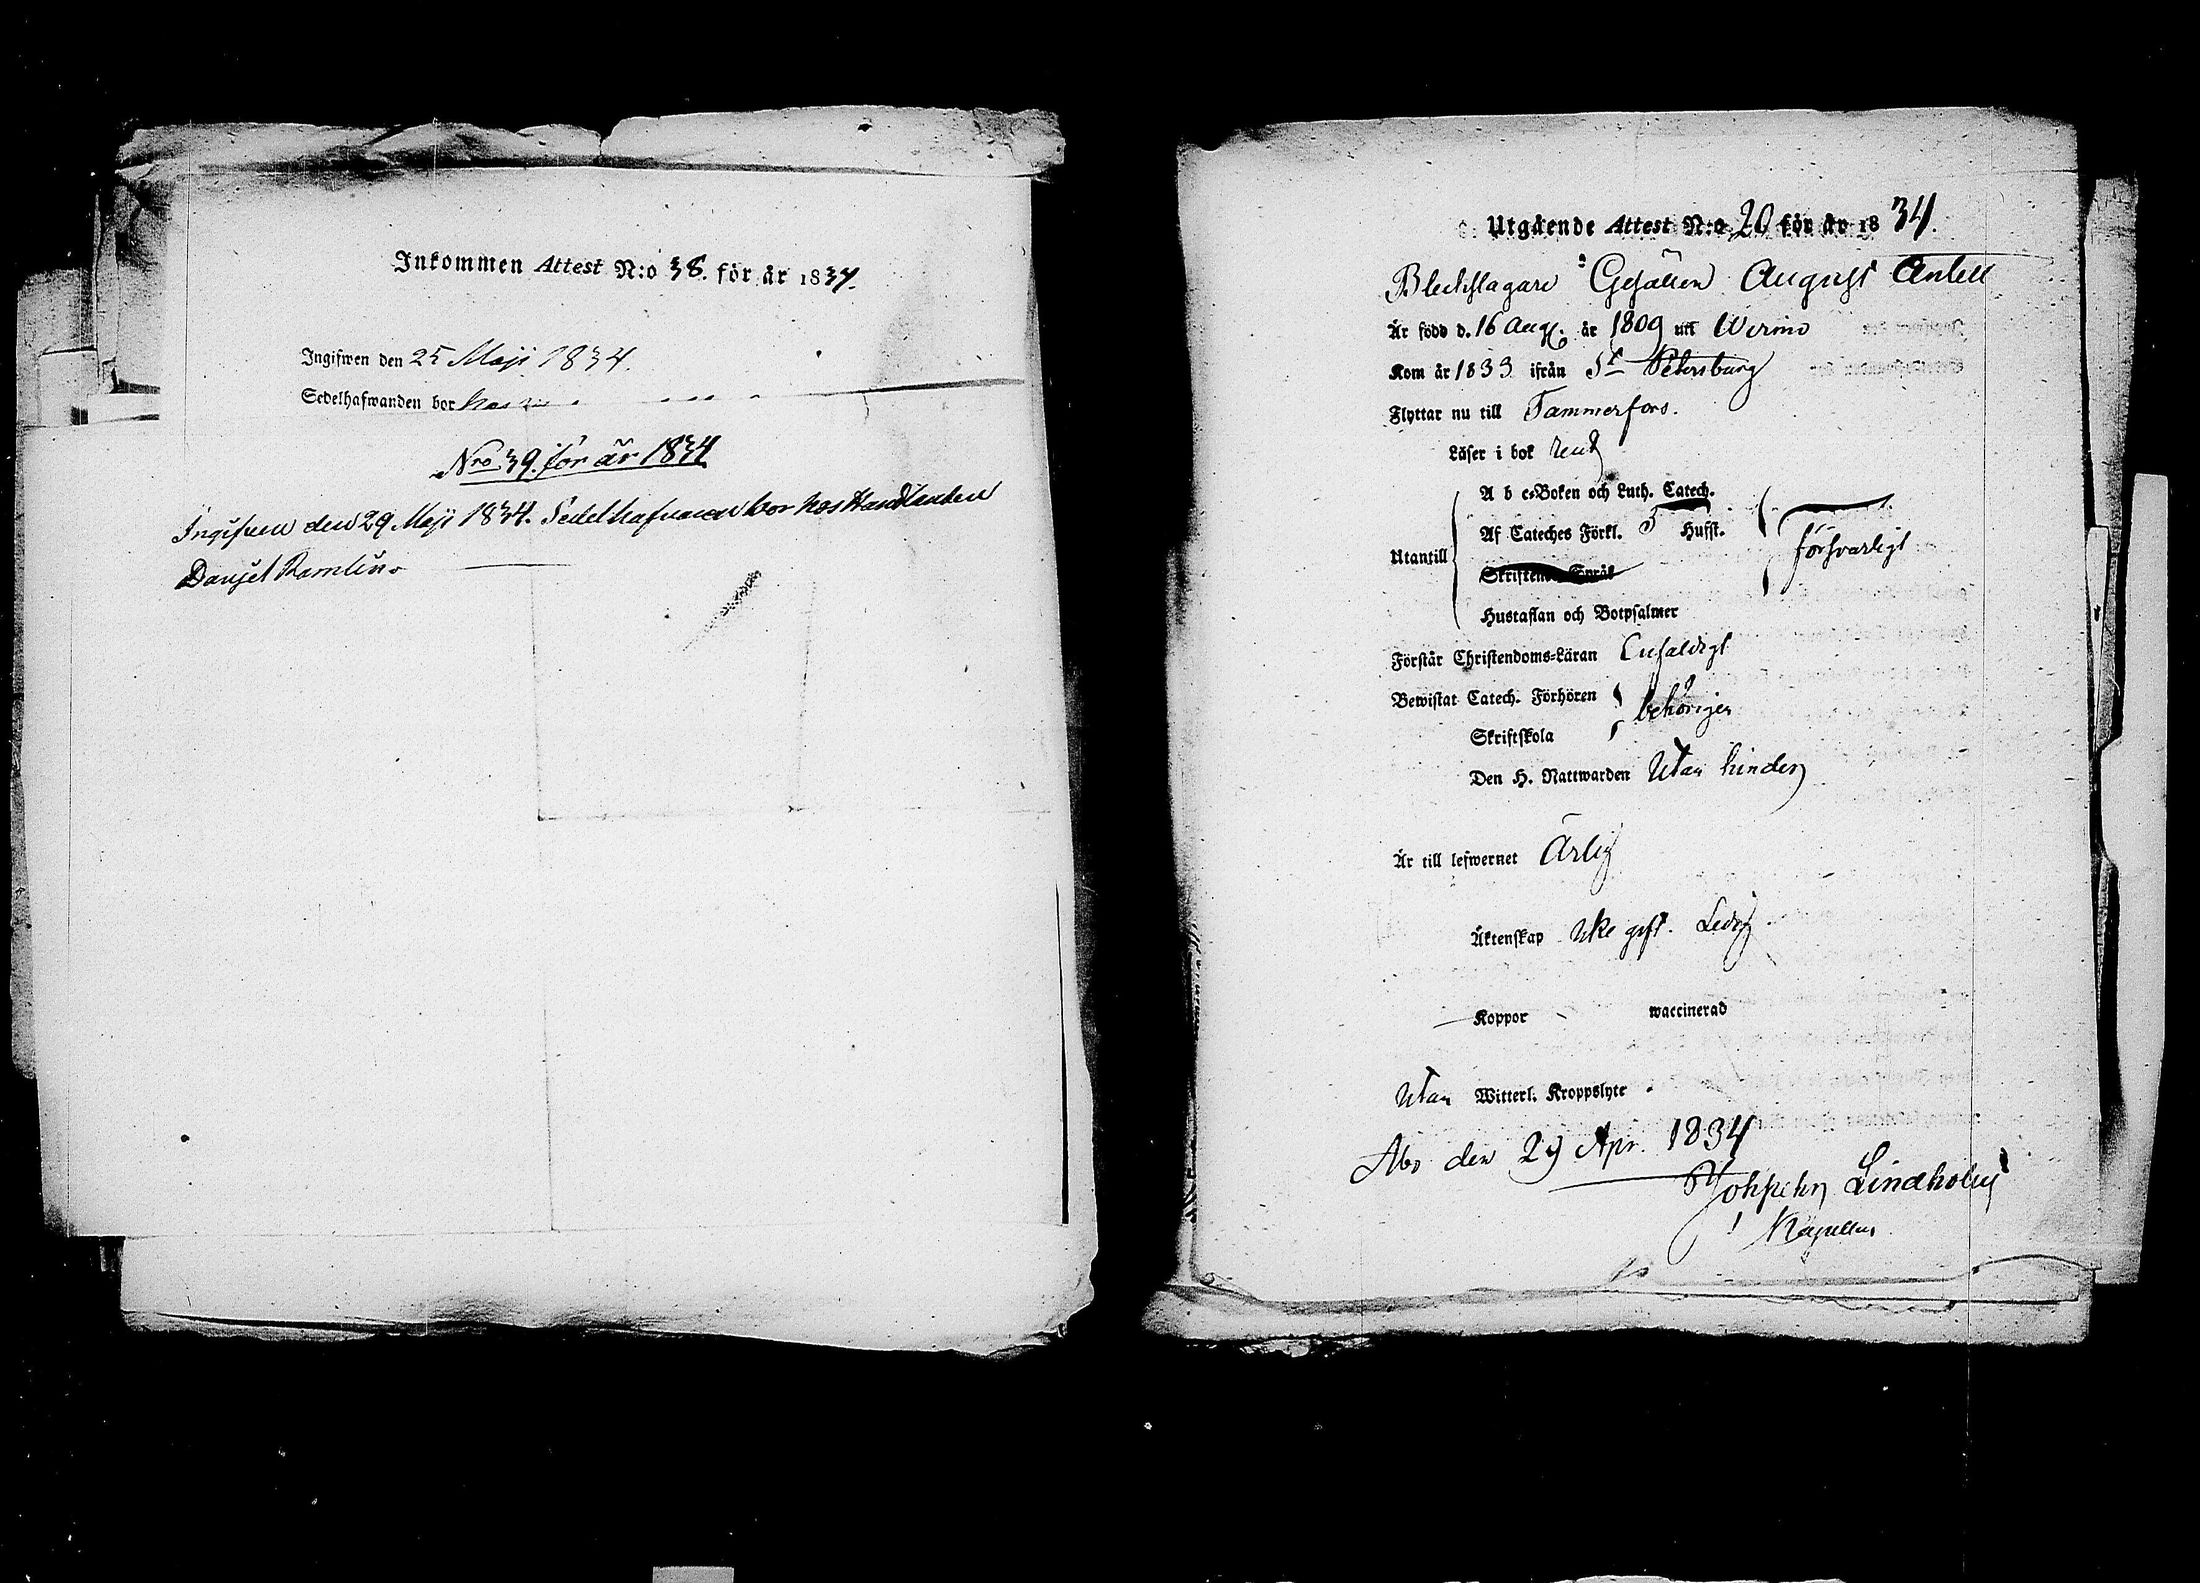 Inkommen Attest N:o 38. för år 1834.
Ingifwen den 25 Maji 1834.
Sedelhafwanden bor hos
Nro 39. för år 1834
Ingifven den 29 Maji 1834. Sedelhafvaren bor hos Handlanden
Danjel Ramlin
Utgående Attest N:o 20 för år 1834.
Bleckslagare Gesällen August Antell
Är född d. 16 Aug. år 1809 uti Wirmo
Kom år 1833 ifrån St Petersburg
Flyttar nu till Tammerfors.
Läser i bok rent
A b c-Boken och Luth. Catech.
Af Cateches Förkl. 3 Hufst.
försvarligt
Utantill
Skriftenes Språk
Hustaflan och Botpsalmer
Förstår Christendoms-Läran Enfaldigt
Bewistat Catech. Förhören
behörigen
Skriftskola
Den H. Nattwarden Utan hinder
Är till lefwernet Ärlig
Äktenskap Icke gift. Ledig
Koppor waccinerad
Utan Witterl. Kroppslyte
Åbo den 29 Apr. 1834
Lindholm